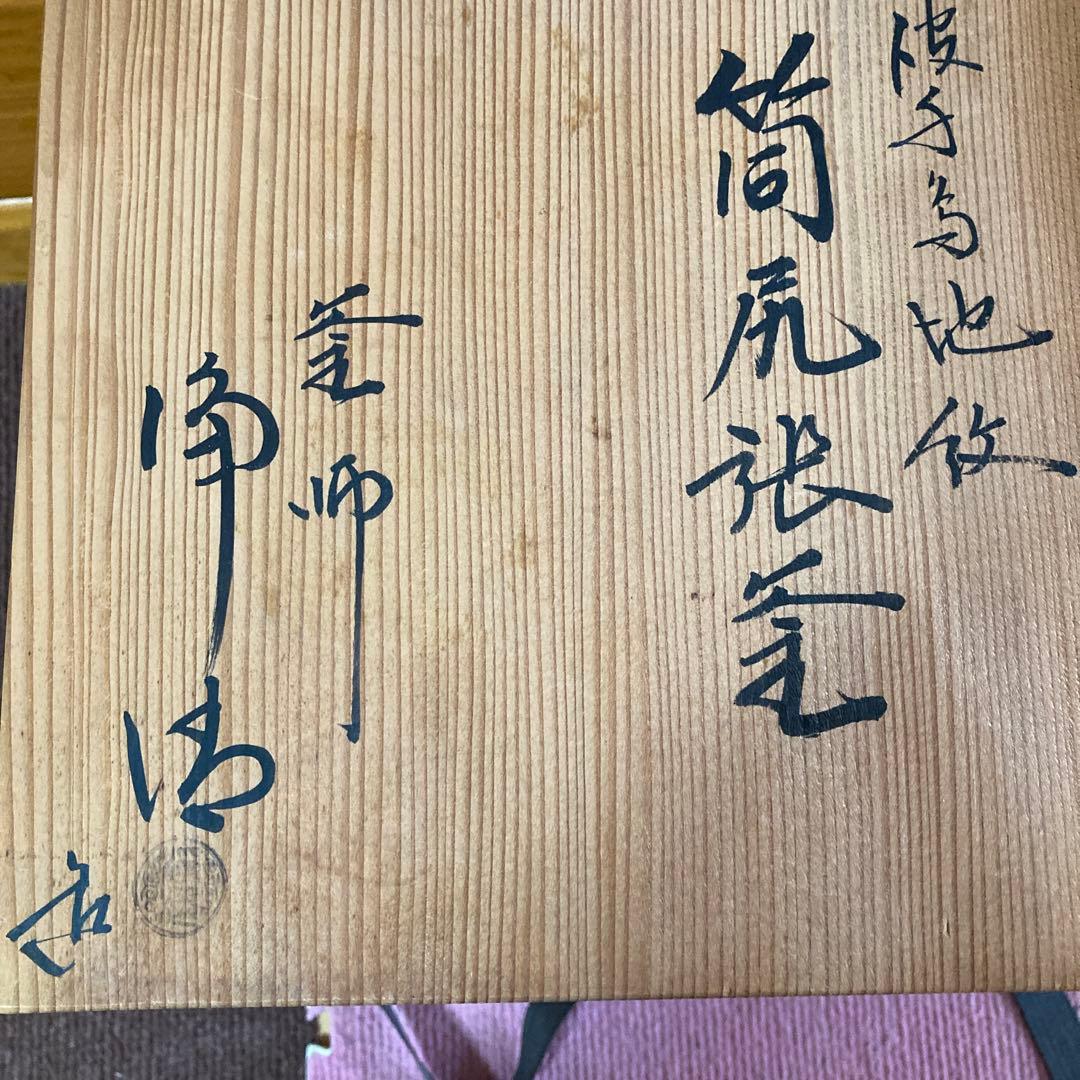 波千鳥地紋
筒尻張釜
釜師
浄清
造